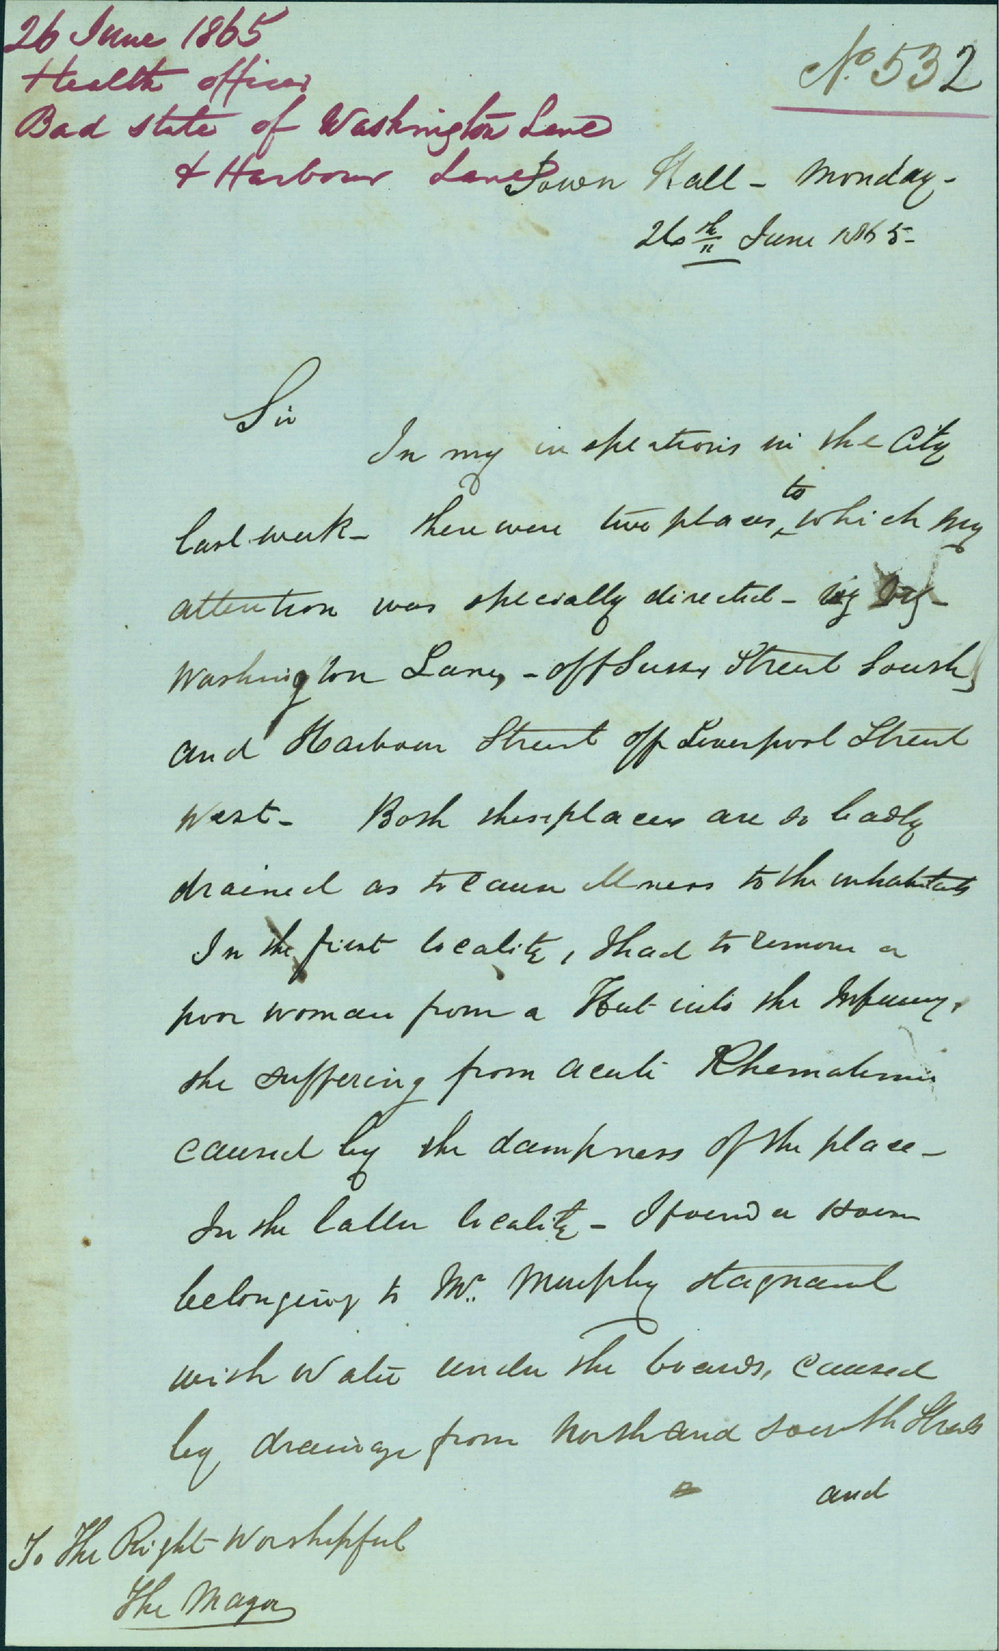 26 June 1865
Health officer
Bad state of Washington Lane
& Harbour Lane
No. 532
Town Hall - Monday -
26th June 1865 -
Sir
In my inspections in the City
last week - there were two places, to which my
attention was specially directed -
Washington Lane, - off Sussex Street South,
and Harbour Street off Liverpool Street
West - Both these places are so badly
drained as to cause illness to the inhabitants
In the first locality, I had to remove a
poor woman from a Hut into the Infirmary,
she suffering from acute Rhematism
caused by the dampness of the place -
In the latter locality - I found a House
belonging to Mr. Murphy stagnant
with Water under the boards, caused
by drainage from North and South Streets
and
To The Right Worshipful
The Mayor